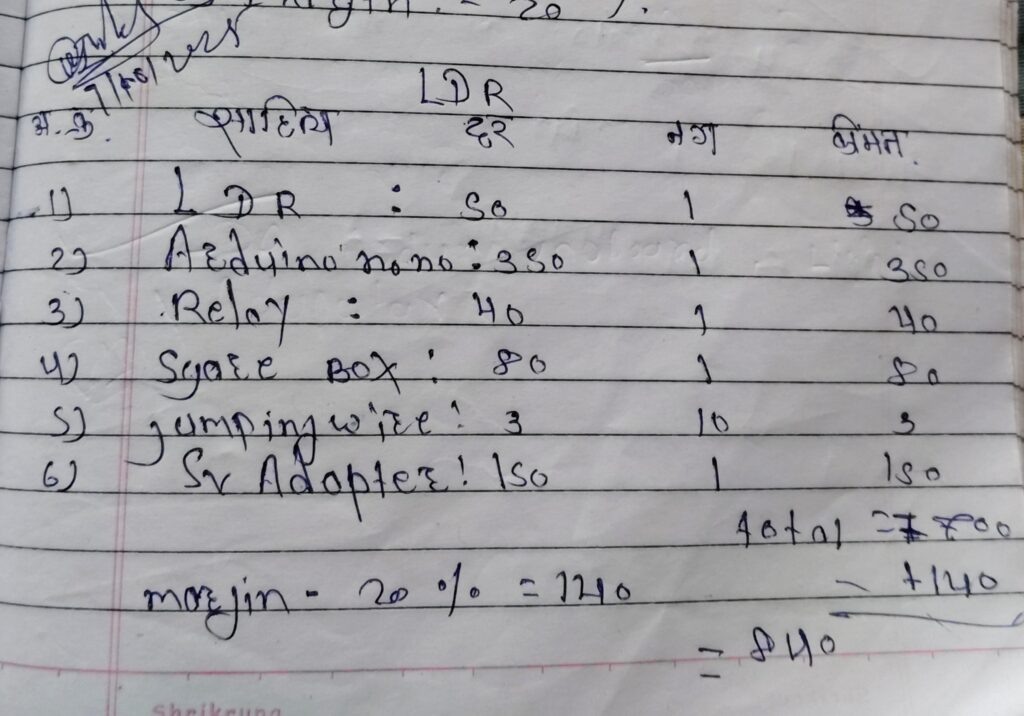 20 %.
LDR
अ.क्र. साहित्य दर नग किंमत.
1) LDR : 50 1 50
2) Arduino nano : 350 1 350
3) Relay : 40 1 40
4) Sgare Box : 80 1 80
5) jumping wire : 3 10 3
6) 5v Adapter : 150 1 150
total = 700
margin - 20 % = 140 - +140
= 840